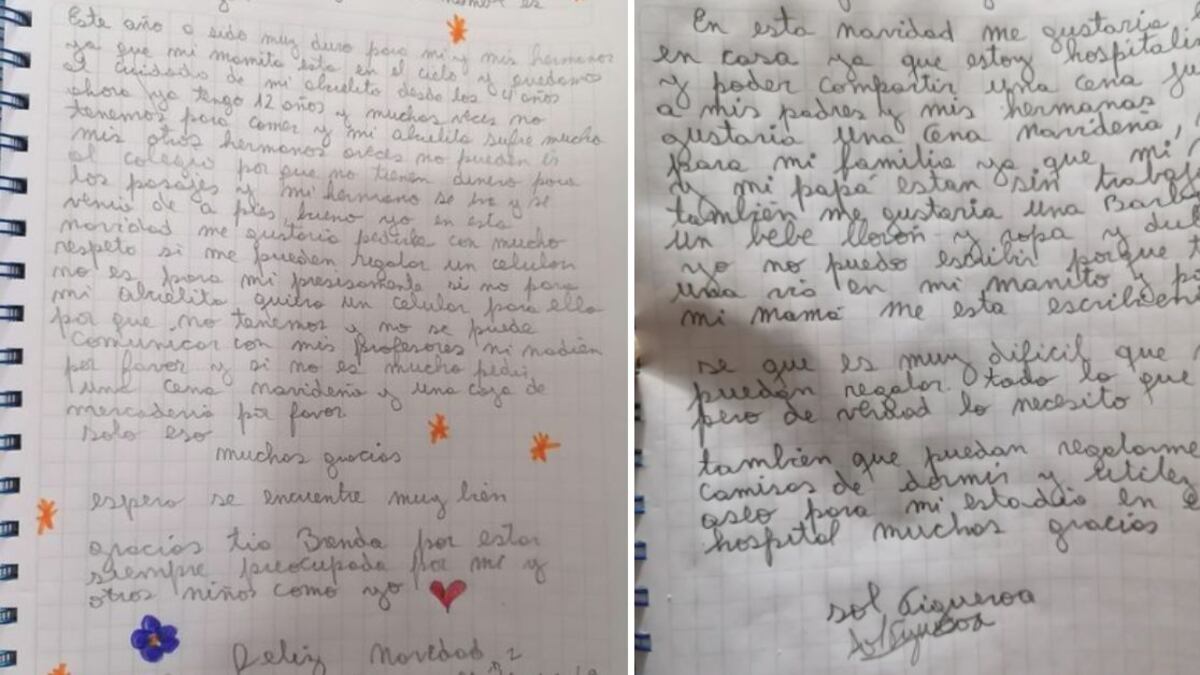 Este año a sido muy duro para mi y mis hermanos
ya que mi mamita esta en el cielo y quedamos
al cuidado de mi abuelito desde los 4 años
ahora ya tengo 12 años y muchas veces no
tenemos para comer y mi abuelita sufre mucho
mis otros hermanos aveces no pueden ir
al colegio por que no tienen dinero para
los pasajes y mi hermano se va y se
viene de a pies, bueno yo en esta
navidad me gustaria pedirle con mucho
respeto si me pueden regalar un celular
no es para mi presisamente si no para
mi abuelita quiero un celular para ella
por que no tenemos y no se puede
comunicar con mis profesores ni nadien
por favor y si no es mucho pedir
una cena navideña y una caja de
mercaderia por favor
solo eso
muchas gracias
espero se encuentre muy bien
gracias tia Brenda por estar
siempre preocupada por mi y
otros niños como yo
Feliz navidad
En esta navidad me gustaria
en casa ya que estoy
y poder compartir una cena
a mis padres y mis hermanas
gustaria una cena navideña,
para mi familia ya que mi
y mi papá estan sin
también me gustaria una
un bebe lloron y ropa y
yo no puedo escribir porque
una via en mi manito y
mi mamá me esta
se que es muy dificil que
puedan regalar todo lo que
pero de verdad lo necesito
también que puedan regalarme
camisas de dormir y utiles
aseo para mi estadia en
hospital muchas gracias
sol Figueroa